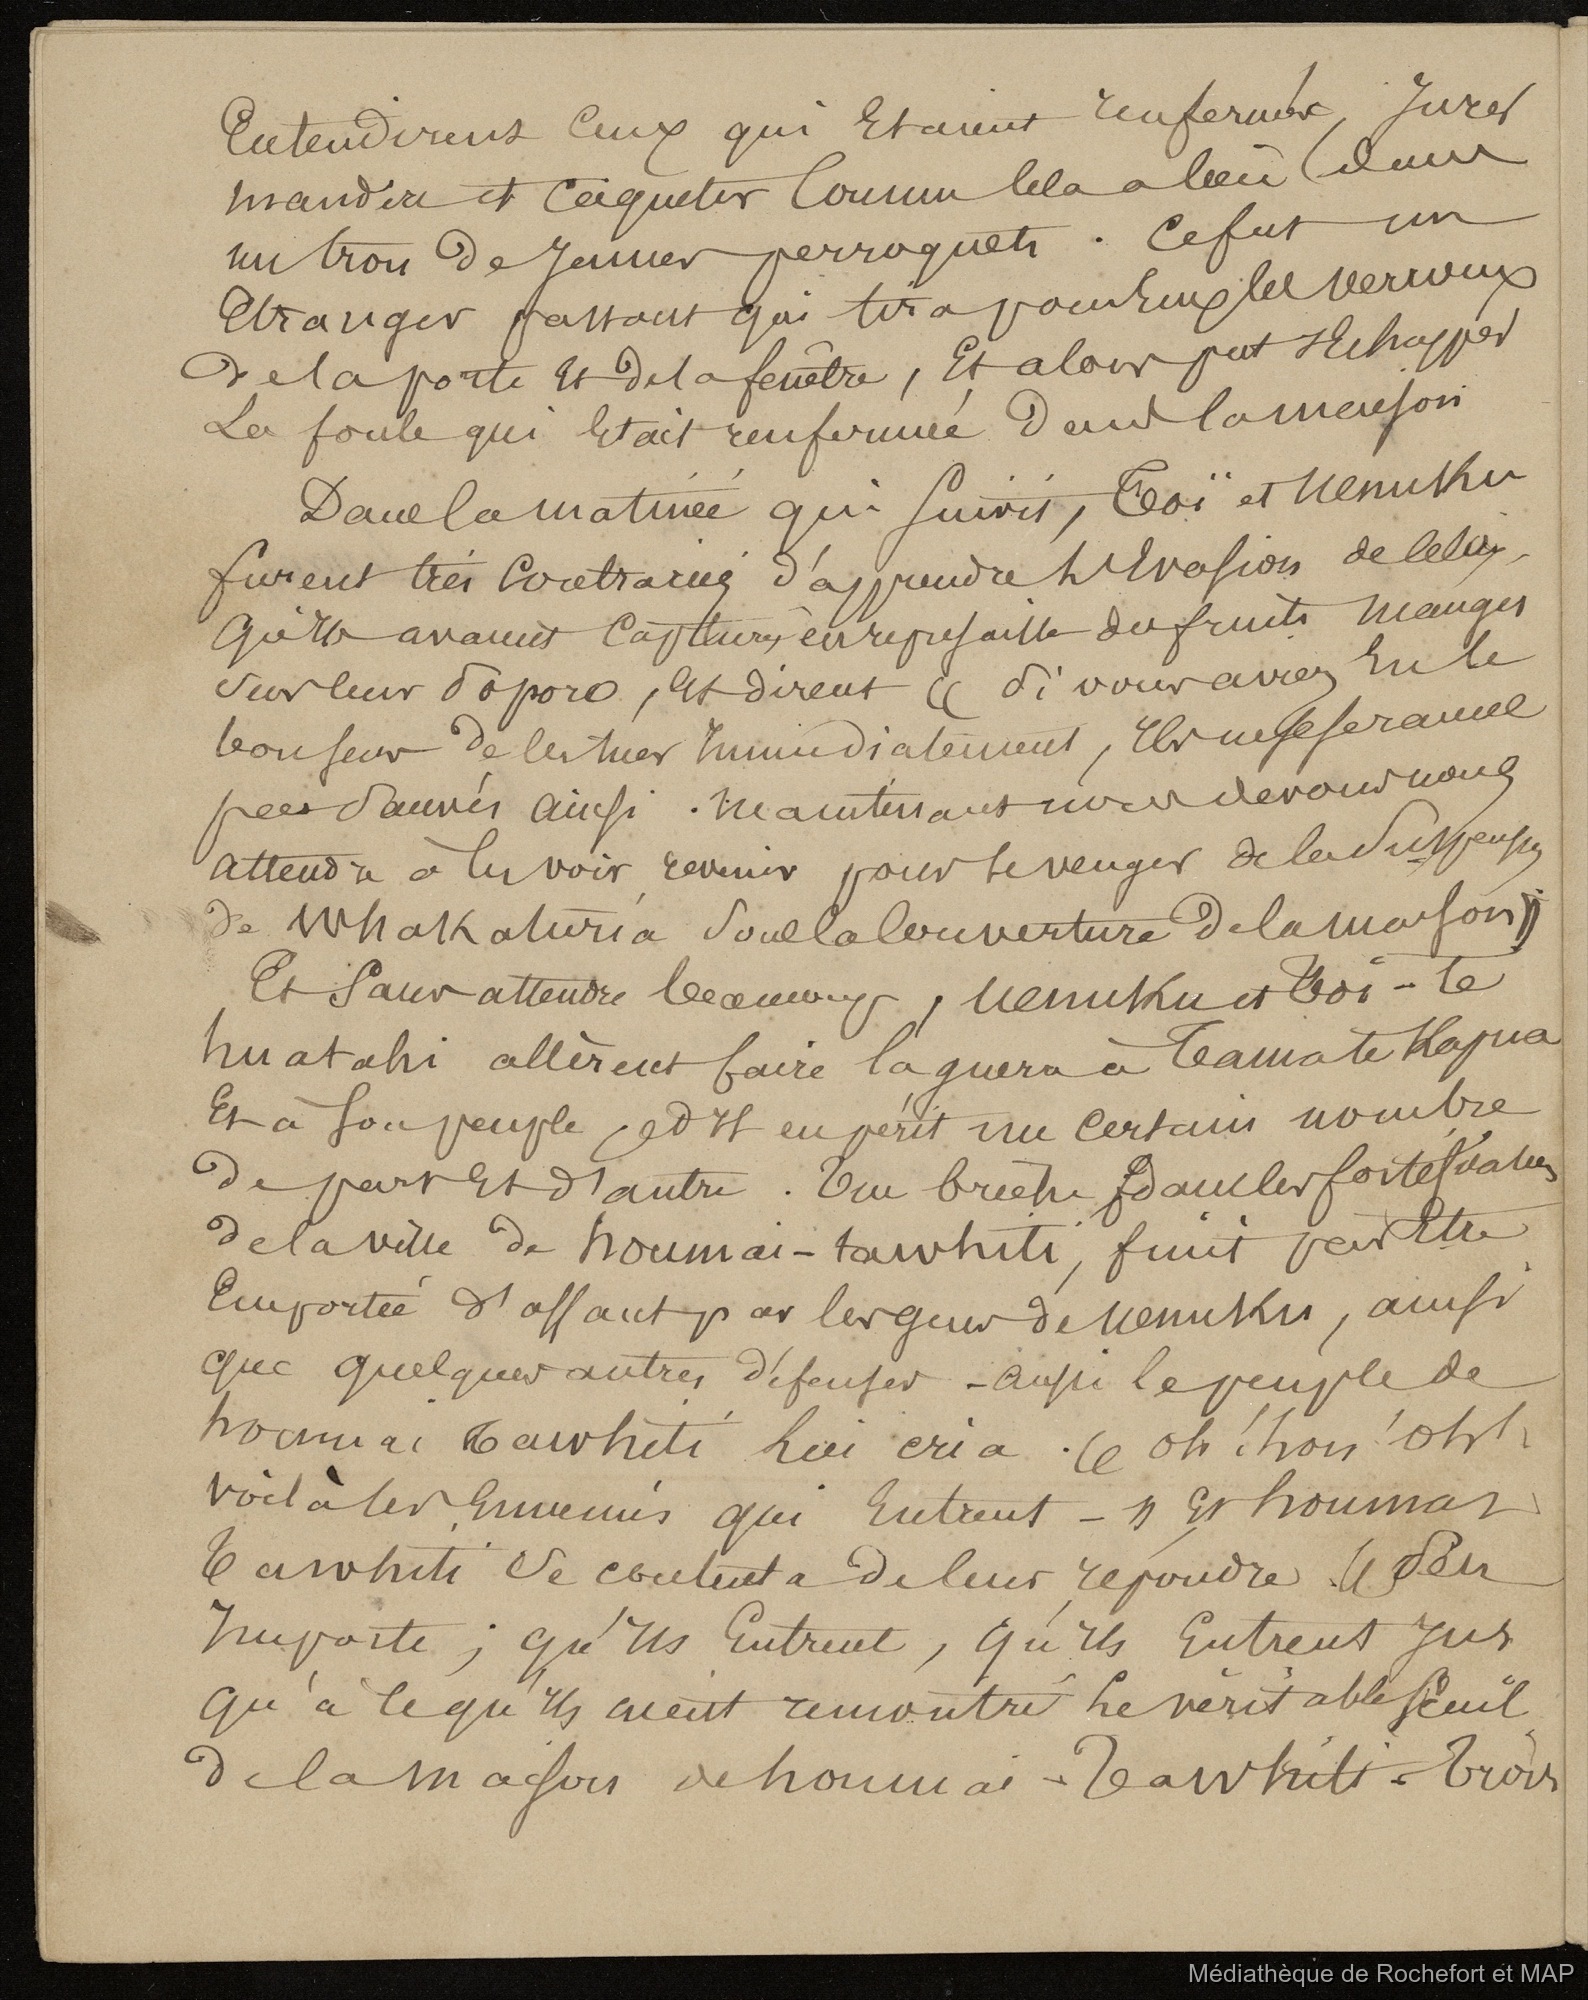 Entendirent Ceux qui Etaient renfermés, Jurer
maudire et Caqueter Comme cela a lieu (dans
un trou de Jeunes perroquets. Ce fut un
Etranger passant qui tira pour Eux les verroux
de la porte Et de la fenêtre, Et alors put s'Echapper
La foule qui Etait renfermée Dans la maison
Dans la matinée qui Suivit, Toï et Uenuku
furent très Contrariés d'apprendre L'Evasion de Celui
qu'ils avaient Capturés en represaille des fruits mangés
Sur leur Poporo, Et dirent (( Si vous aviez Eu le
bon sens de les tuer Immédiatement, Ils ne se seraient
pas Sauvés ainsi. Maintenant nous devons nous
attendre à les voir revenir pour se venger de la Suspension
de Whakaturia Sous la Couverture de la maison ))
Et Sans attendre beaucoup, Uenuku et Toi-te
huatahi allèrent faire la guerre à Tama te Kapua
Et à Son peuple, Et Il en périt un Certain nombre
de part Et d'autre. Une brèche dans les fortifications
de la ville de houmai-tawhiti, finit par Etre
Emportée d'assaut par les gens de Uenuku, ainsi
que quelques autres défenses - aussi le peuple de
houmai Tawhiti lui cria. (( Oh! hou! Oh!
voilà les Ennemis qui Entrent - )) Et houmai
Tawhiti Se contenta de leur repondre (( Peu
Importe; qu'Ils Entrent, qu'Ils Entrent Jus
qu'à ce qu'Ils aient remontré le véritable Seuil
de la Maison de houmai - Tawhiti - Trois
Médiathèque de Rochefort et MAP